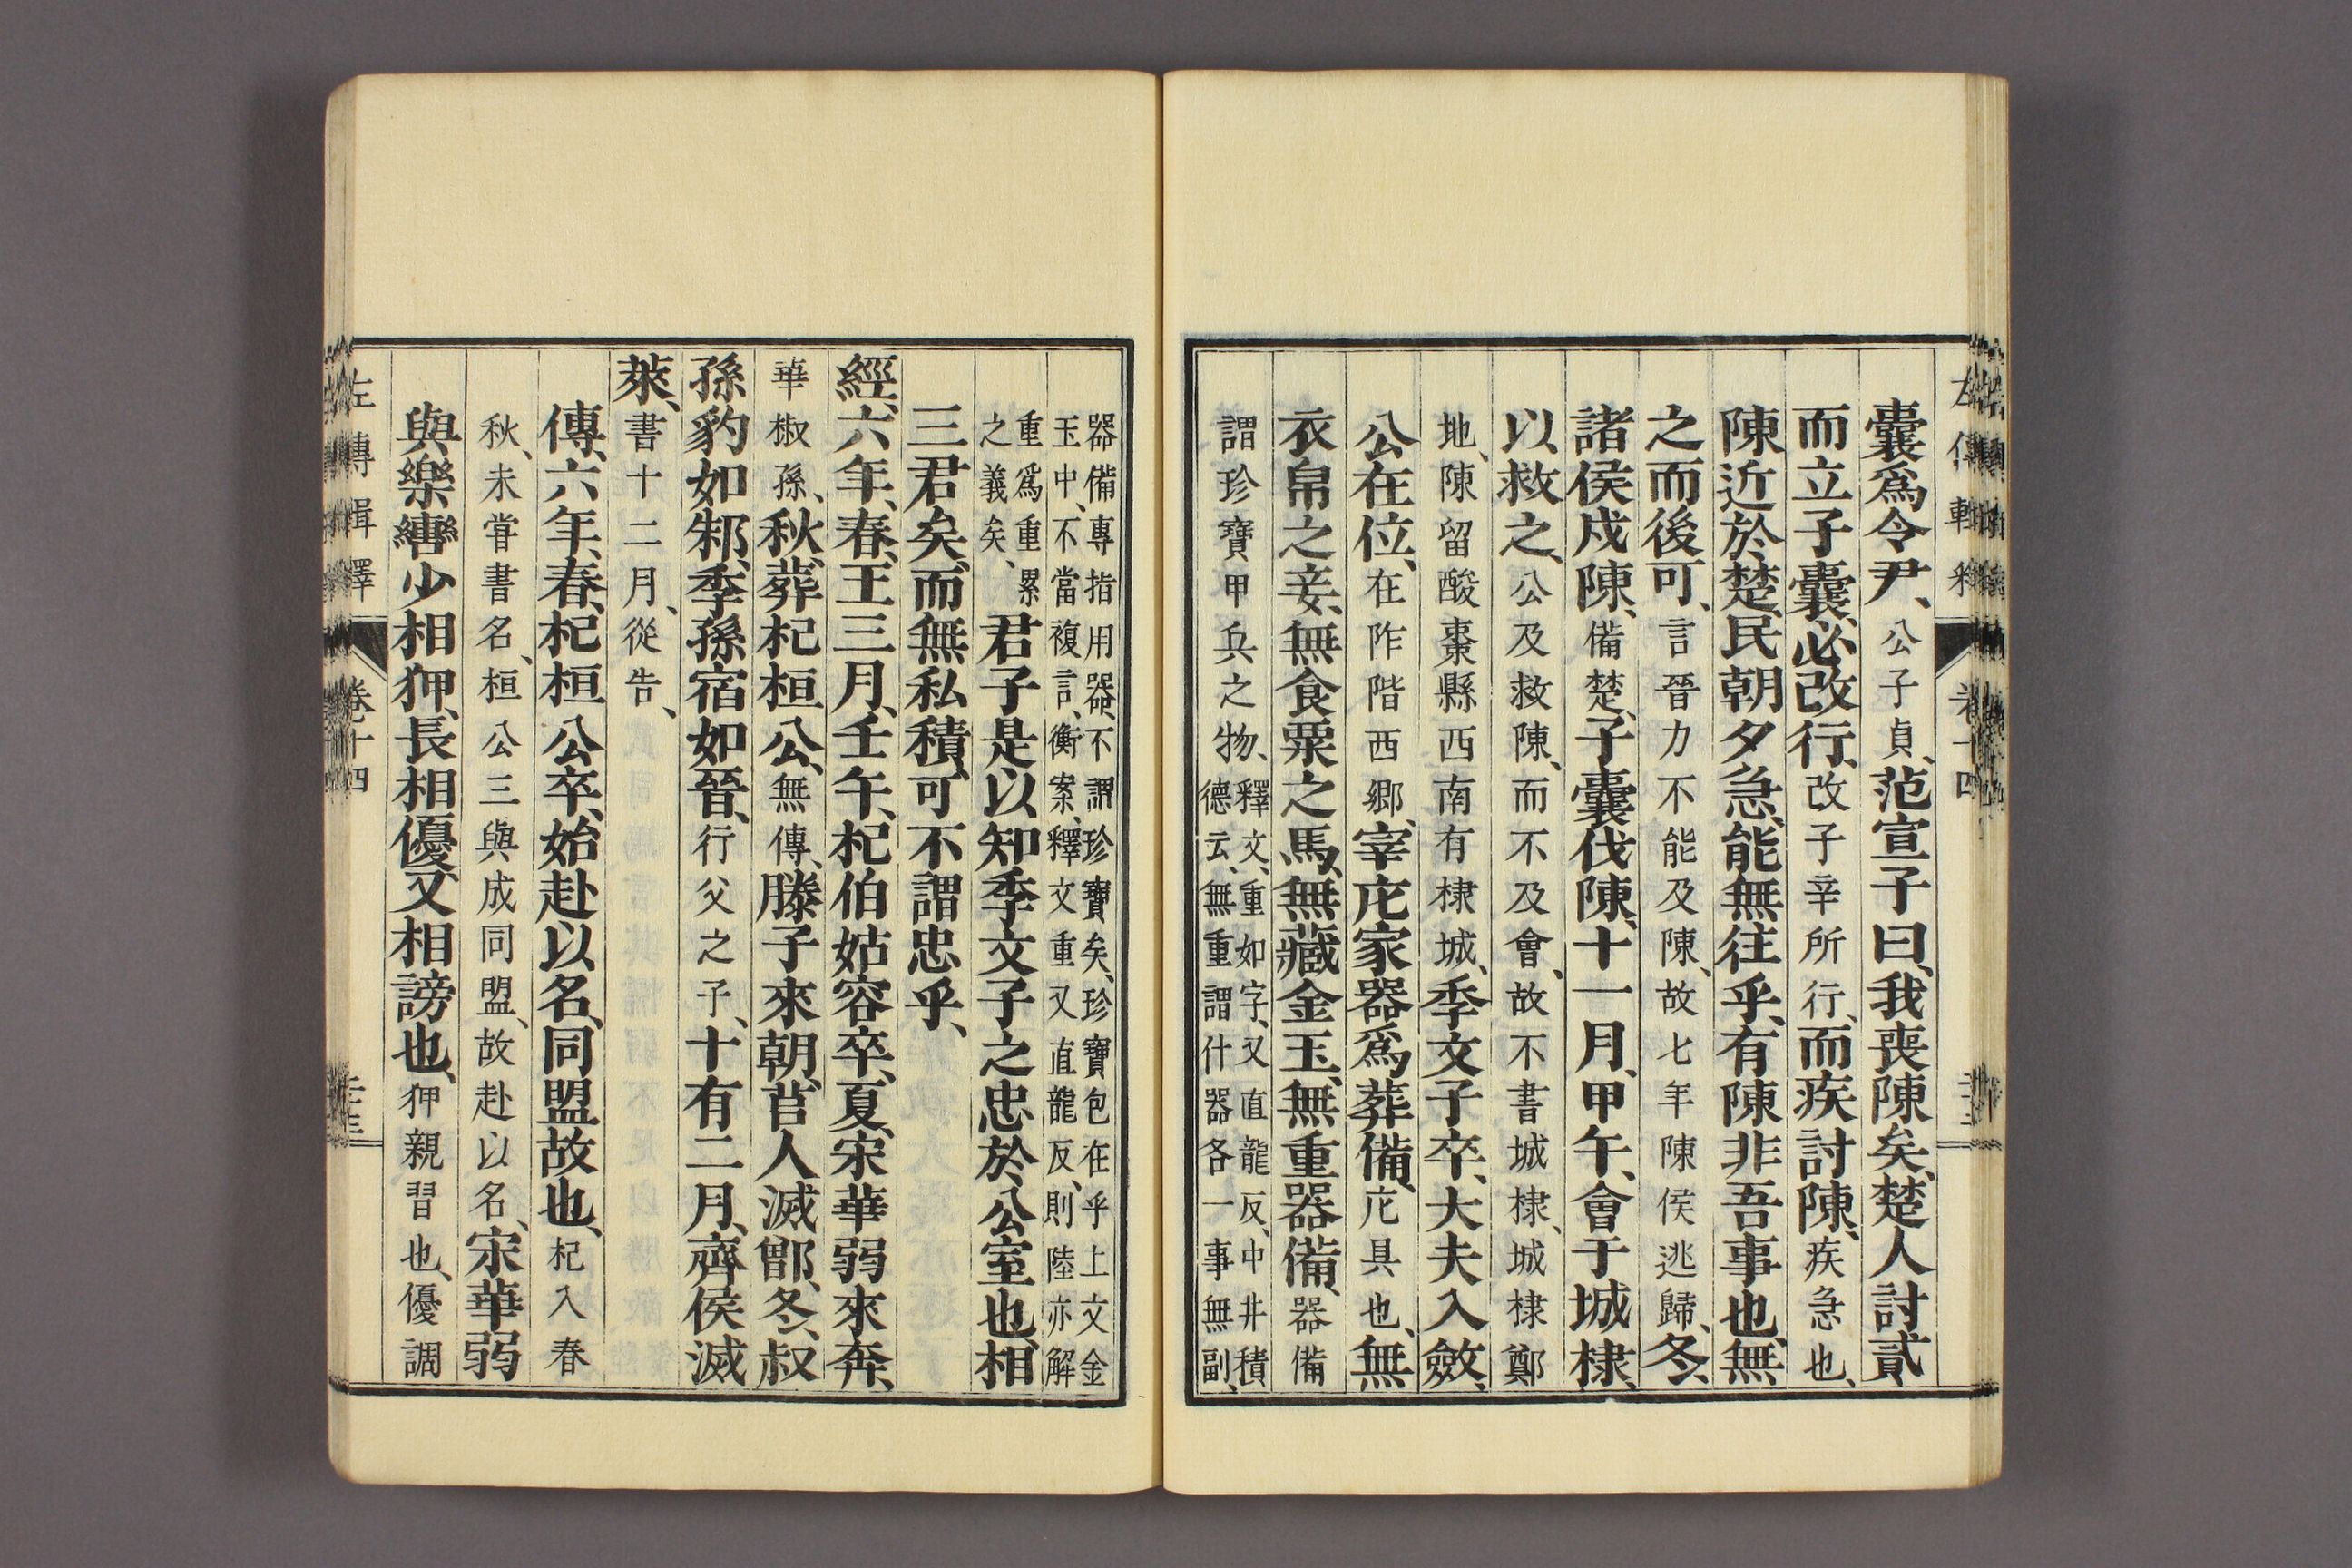 囊爲令尹、公子貞、范宣子曰、我喪陳矣、楚人討貳
而立子囊、必改行、改子辛所行、而疾討陳、疾急也、
陳近於楚、民朝夕急、能無往乎、有陳非吾事也、無
之而後可、言晉力不能及陳、故七年陳侯逃歸、冬、
諸侯戍陳、備楚、子囊伐陳、十一月、甲午、會于城棣、
以救之、公及救陳、而不及會、故不書城棣、城棣鄭
地、陳留酸棗縣西南有棣城、季文子卒、大夫入斂、
公在位、在阼階西郷、宰庀家器爲葬備、庀具也、無
衣帛之妾、無食粟之馬、無藏金玉、無重器備、器備
謂珍寶甲兵之物、釋文、重如字、又直龍反、中井積
德云、無重謂什器各一事無副、
器備專指用器、不謂珍寶矣、珍寶包在乎上文金
玉中、不當複言、衡案、釋文重又直龍反、則陸亦解
重爲重累
之義矣、君子是以知季文子之忠於公室也、相
三君矣、而無私積、可不謂忠乎、
經、六年、春、王三月、壬午、杞伯姑容卒、夏、宋華弱來奔、
華椒孫、秋、葬杞桓公、無傳、滕子來朝、莒人滅鄫、冬、叔
孫豹如邾、季孫宿如晉、行父之子、十有二月、齊侯滅
萊、書十二月、從告、
傳、六年、春、杞桓公卒、始赴以名、同盟故也、杞入春
秋、未嘗書名、桓公三與成同盟、故赴以名、宋華弱
與樂轡少相狎、長相優、又相謗也、狎親習也、優調
左傳輯釋 卷十四